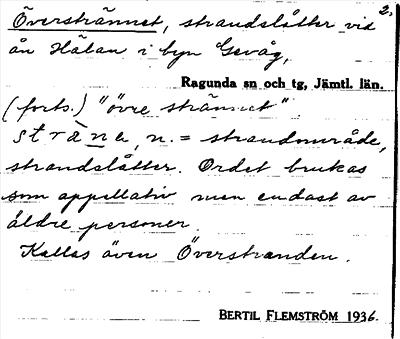 2.
Överstrännet, strandslåtter vid
ån Håban i byn Gevåg,
Ragunda sn och tg, Jämtl. län.
(forts.) "övre strännet"
sträne, n. = strandområde,
strandslåtter. Ordet brukas
som appellativ men endast av
äldre personer.
Kallas även Överstranden.
BERTIL FLEMSTRÖM 1936.